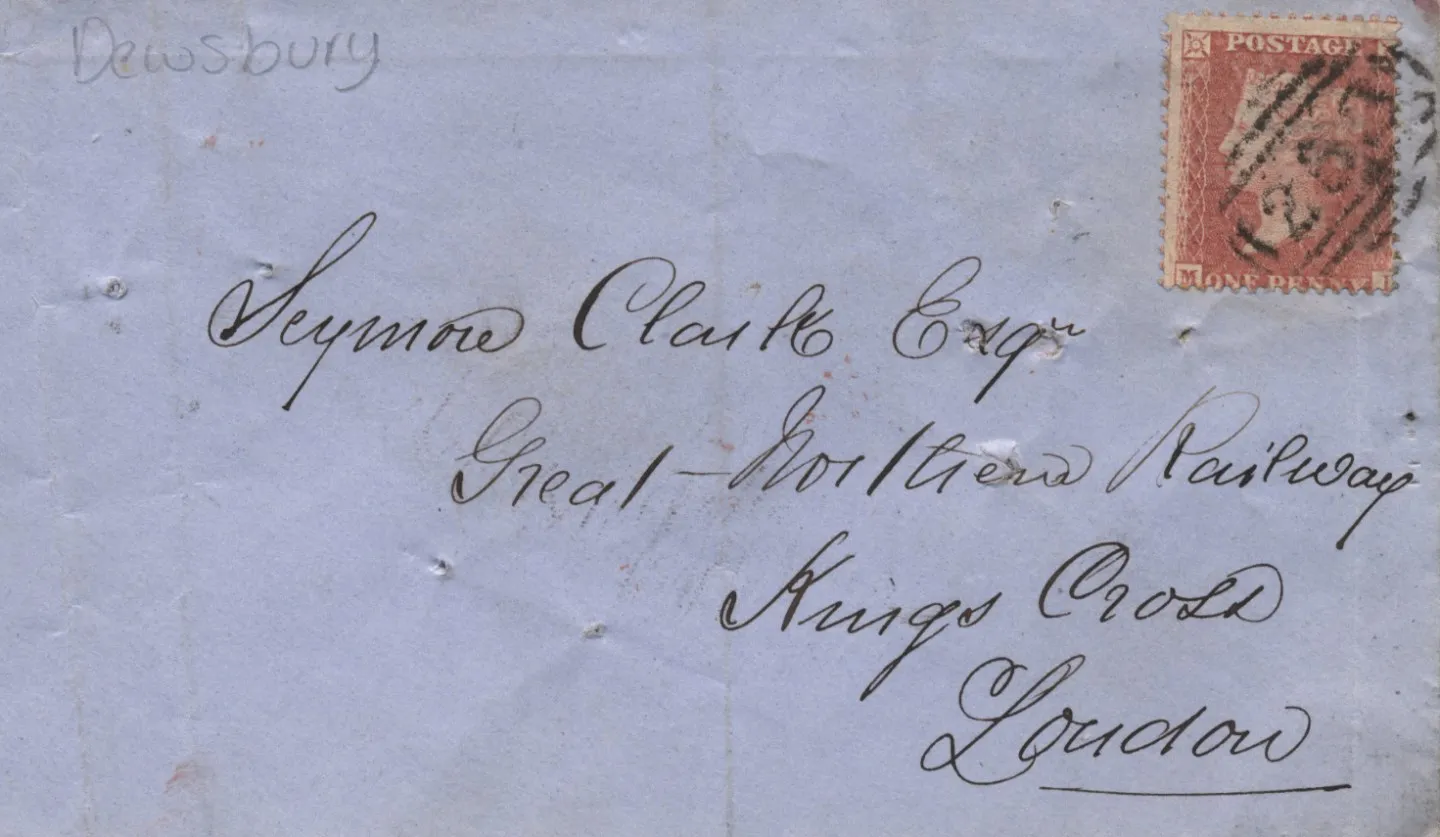 Dewsbury
POSTAGE
M ONE PENNY
Seymore Clark Esqr
Great Northern Railway
Kings Cross
London